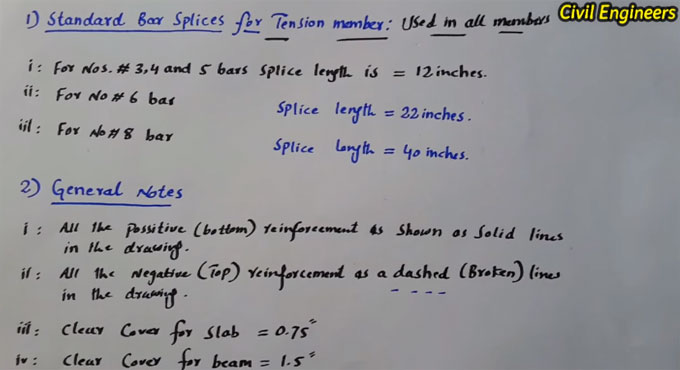 Civil Engineers
1) Standard Bar Splices for Tension member: Used in all members
i: For Nos. # 3,4 and 5 bars splice length is = 12 inches.
ii: For No # 6 bar Splice length = 22 inches.
iii: For No # 8 bar Splice Length = 40 inches.
2) General Notes
i: All the Possitive (bottom) reinforcement is shown as solid lines
in the drawing.
ii: All the Negative (Top) reinforcement as a dashed (Broken) lines
in the drawing.
iii: Clear Cover for slab = 0.75"
iv: Clear Cover for beam = 1.5"